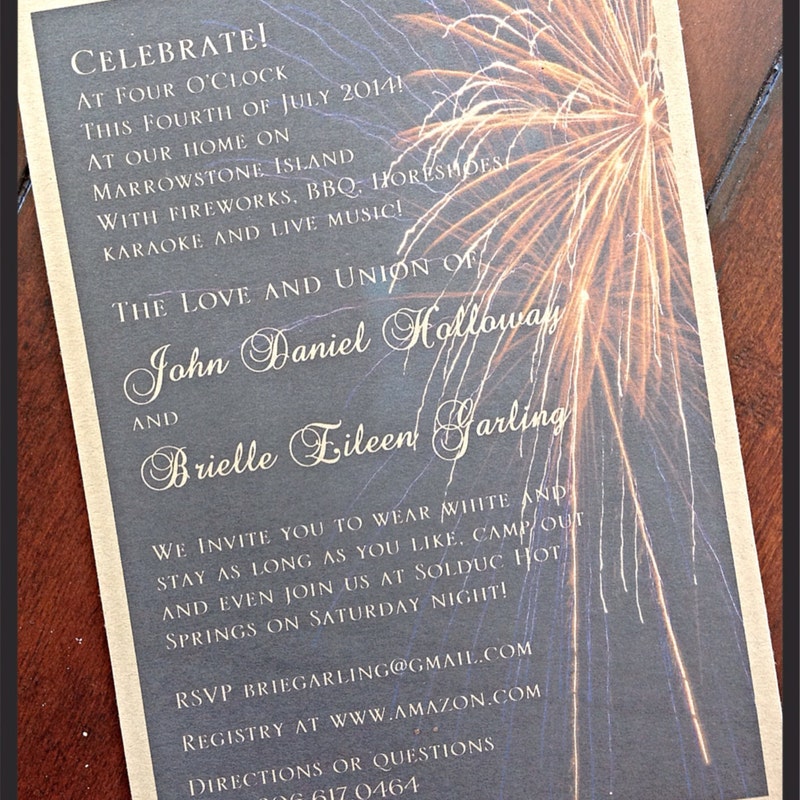 Celebrate!
At Four O'Clock
This Fourth of July 2014!
At our home on
Marrowstone Island
With fireworks, BBQ, Horeshoes,
karaoke and live music!
The Love and Union of
John Daniel Holloway
and
Brielle Eileen Garling
We Invite you to wear white and
stay as long as you like, camp out
and even join us at Solduc Hot
Springs on Saturday night!
RSVP briegarling@gmail.com
Registry at www.amazon.com
Directions or questions
206.617.0464